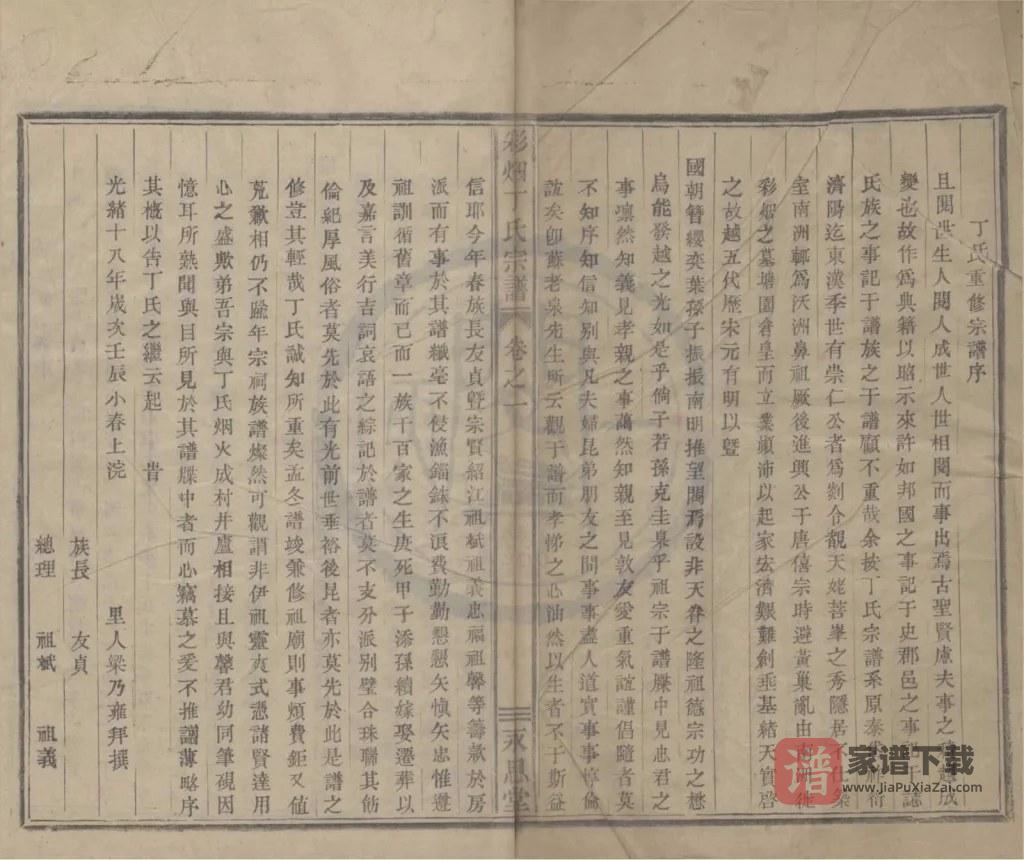 丁氏重修宗譜序
且閱世生人閱人成世人世相閱而事出焉古聖賢慮夫事之
變也故作爲典籍以昭示來許如邦國之事記于史郡邑之事記于誌
氏族之事記于譜族之于譜顧不重哉余按丁氏宗譜系原
濟陽迄東漢季世有崇仁公者爲剡令覩天姥菩峯之秀隱居不仕築
室南洲轉爲沃洲鼻祖厥後進興公于唐僖宗時避黃巢亂由
彩烟之墓塘園倉皇而立業顚沛以起家宏濟艱難創垂基緒天實啓
之故越五代歷宋元有明以曁
國朝簪纓奕葉孫子振振南明推望閥焉設非天眷之隆祖德宗功之懋
烏能發越之光如是乎倘子若孫克圭臬乎祖宗于譜牒中見忠君之
事凜然知義見孝親之事藹然知親至見敦友愛重氣誼謹倡隨者莫
不知序知信知別與凡夫婦昆弟朋友之間事事盡人道實事事惇倫
誼矣卽蘇老泉先生所云觀于譜而孝悌之心油然以生者不于斯益
彩烟丁氏宗譜
卷之一
永思堂
信耶今年春族長友貞曁宗賢紹江祖斌祖義忠福祖馨等籌款於房
派而有事於其譜纖毫不侵漁錙銖不浪費勤勤懇懇矢愼矢忠惟遵
祖訓循舊章而已而一族千百家之生庚死甲子添孫續嫁娶遷葬以
及嘉言美行吉詞哀語之綜記於譜者莫不支分派別璧合珠聯其飭
倫紀厚風俗者莫先於此有光前世垂裕後昆者亦莫先於此是譜之
修豈其輕哉丁氏誠知所重矣孟冬譜竣兼修祖廟則事煩費鉅又值
荒歉相仍不踰年宗祠族譜燦然可觀謂非伊祖靈爽式憑諸賢達用
心之盛歟弟吾宗與丁氏烟火成村井廬相接且與馨君幼同筆硯因
憶耳所熟聞與目所見於其譜牒中者而心竊慕之爰不推譾薄略序
其概以告丁氏之繼云起
昔
光緒十八年歲次壬辰小春上浣
里人梁乃雍拜撰
族長
友貞
總理
祖斌
祖義
譜
家谱下载
www.JiaPuXiaZai.com